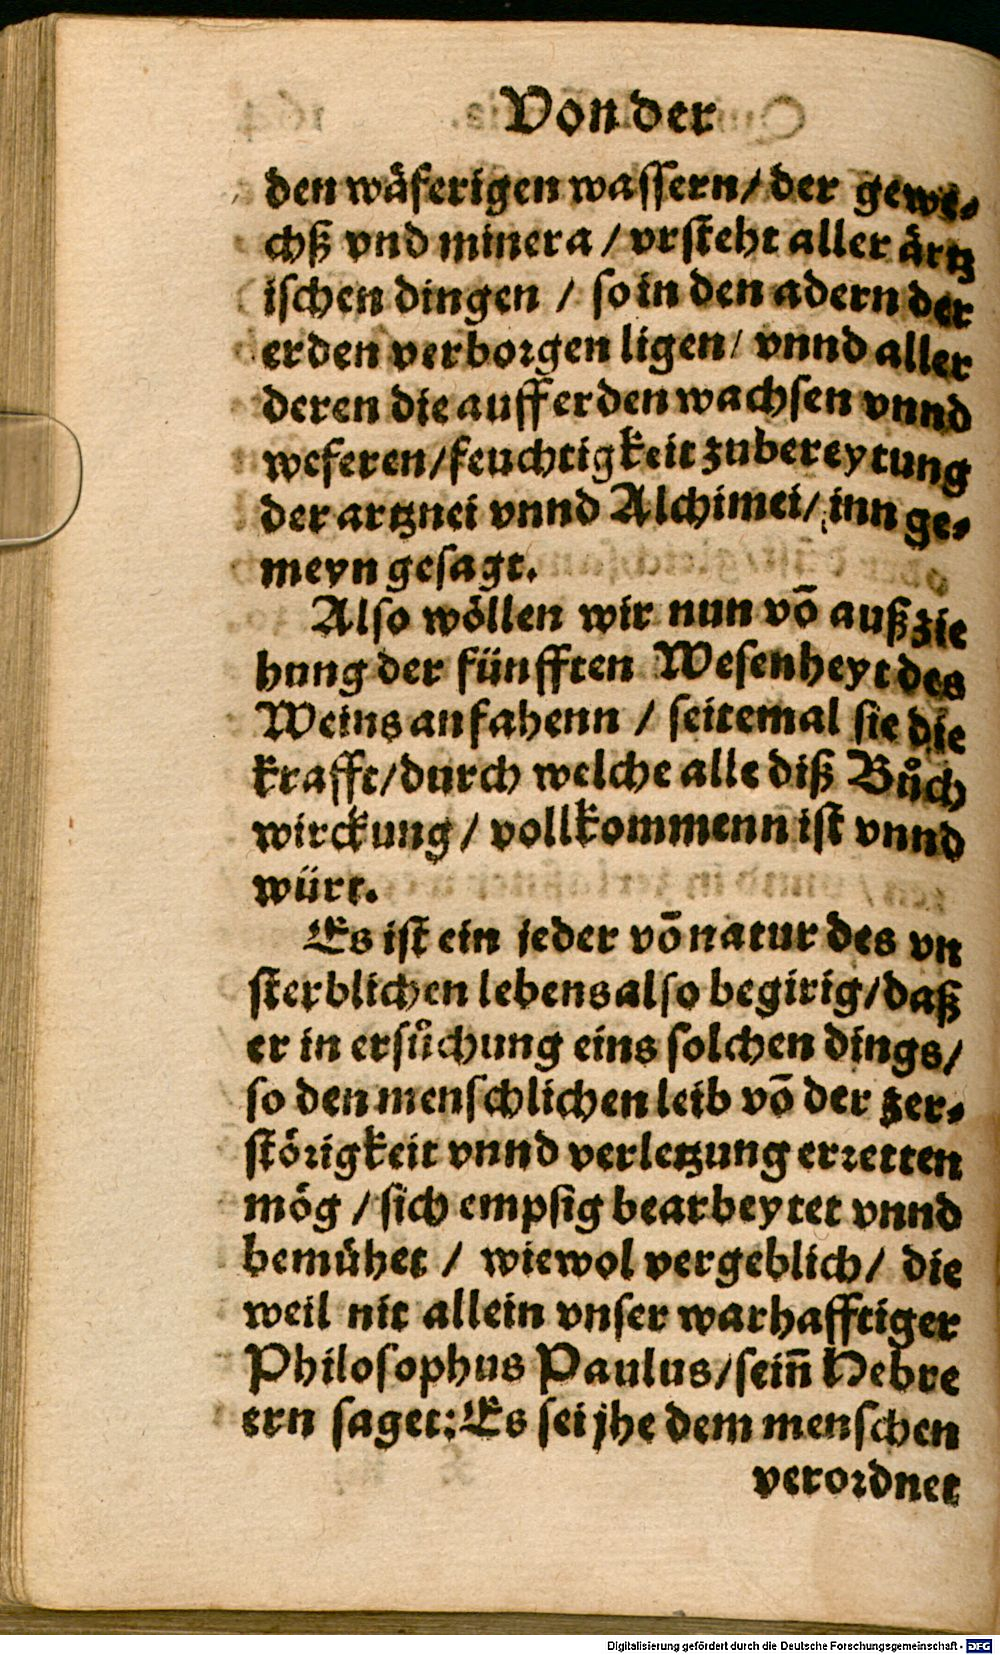 Von der
den wäserigen wassern/ der gewe⸗
chß vnd minera / vrsteht aller ärtz
ischen dingen / so in den adern der
erden verborgen ligen/ vnnd aller
deren die auff erden wachsen vnnd
weseren/feuchtigkeit zubereytung
der artznei vnnd Alchimei/ inn ge⸗
meyn gesagt.
Also wöllen wir nun vō außzie
hung der fünfften Wesenheyt des
Weins anfahenn / seitemal sie die
krafft/durch welche alle diß Bůch
wirckung / vollkommenn ist vnnd
würt.
Es ist ein jeder vō natur des vn
sterblichen lebens also begirig/daß
er in ersůchung eins solchen dings/
so den menschlichen leib vō der zer⸗
störigkeit vnnd verletzung erretten
mög / sich empsig bearbeytet vnnd
bemühet / wiewol vergeblich/ die
weil nit allein vnser warhafftiger
Philosophus Paulus/sein̄ Hebre
ern saget: Es sei jhe dem menschen
verordnet
Digitalisierung gefördert durch die Deutsche Forschungsgemeinschaft - DFG